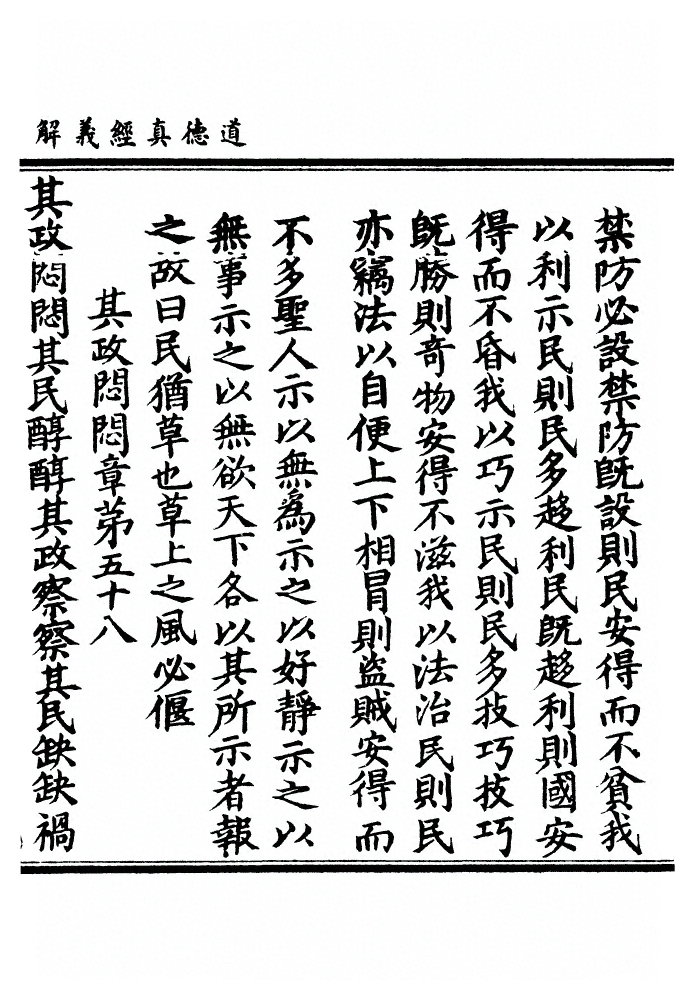 道德真經義解
禁防必設禁防旣設則民安得而不貧我
以利示民則民多趍利民旣趍利則國安
得而不昏我以巧示民則民多技巧技巧
旣勝則奇物安得不滋我以法治民則民
亦竊法以自便上下相冒則盜賊安得而
不多聖人示以無為示之以好靜示之以
無事示之以無欲天下各以其所示者報
之故曰民猶草也草上之風必偃
其政悶悶章第五十八
其政悶悶其民醇醇其政察察其民缺缺禍